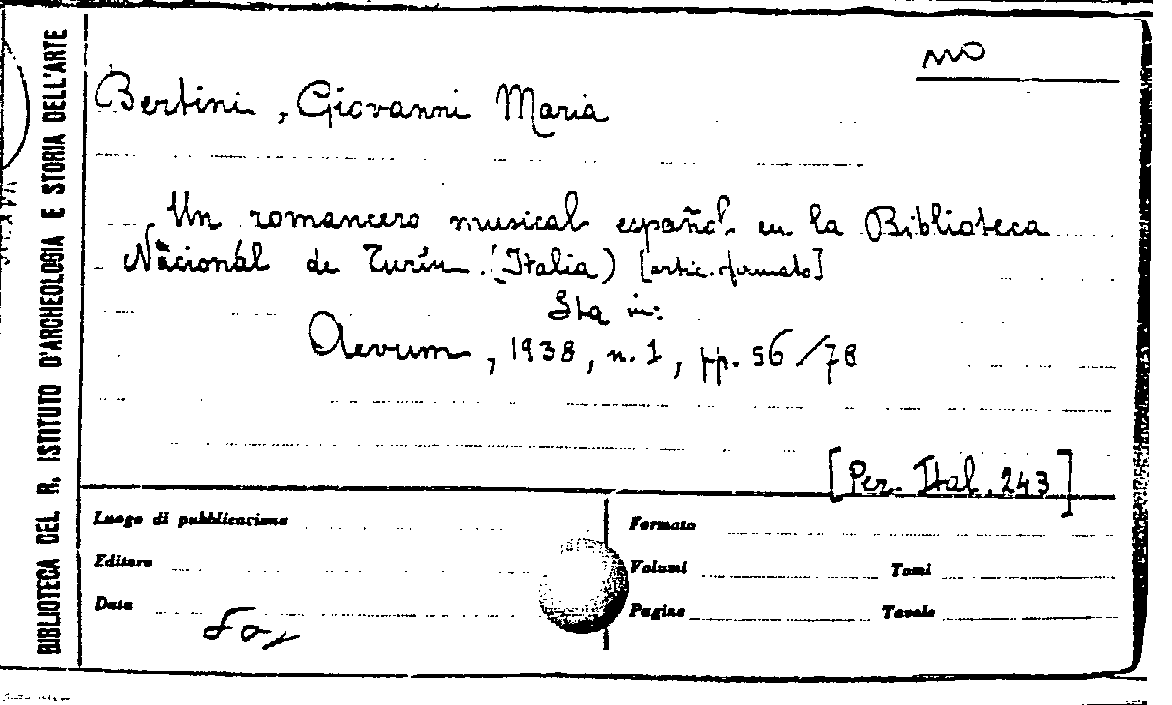 BIBLIOTECA DEL R. ISTITUTO D'ARCHEOLOGIA E STORIA DELL'ARTE
Bertini, Giovanni Maria
Un romancero musical español en la Biblioteca
Nacional de Turín (Italia) [artic. firmato]
Sta in:
Aevum, 1938, n. 1, pp. 56/78
[Per. Ital. 243]
Luogo di pubblicazione
Editore
Data
Formato
Volumi Tomi
Pagine Tavole